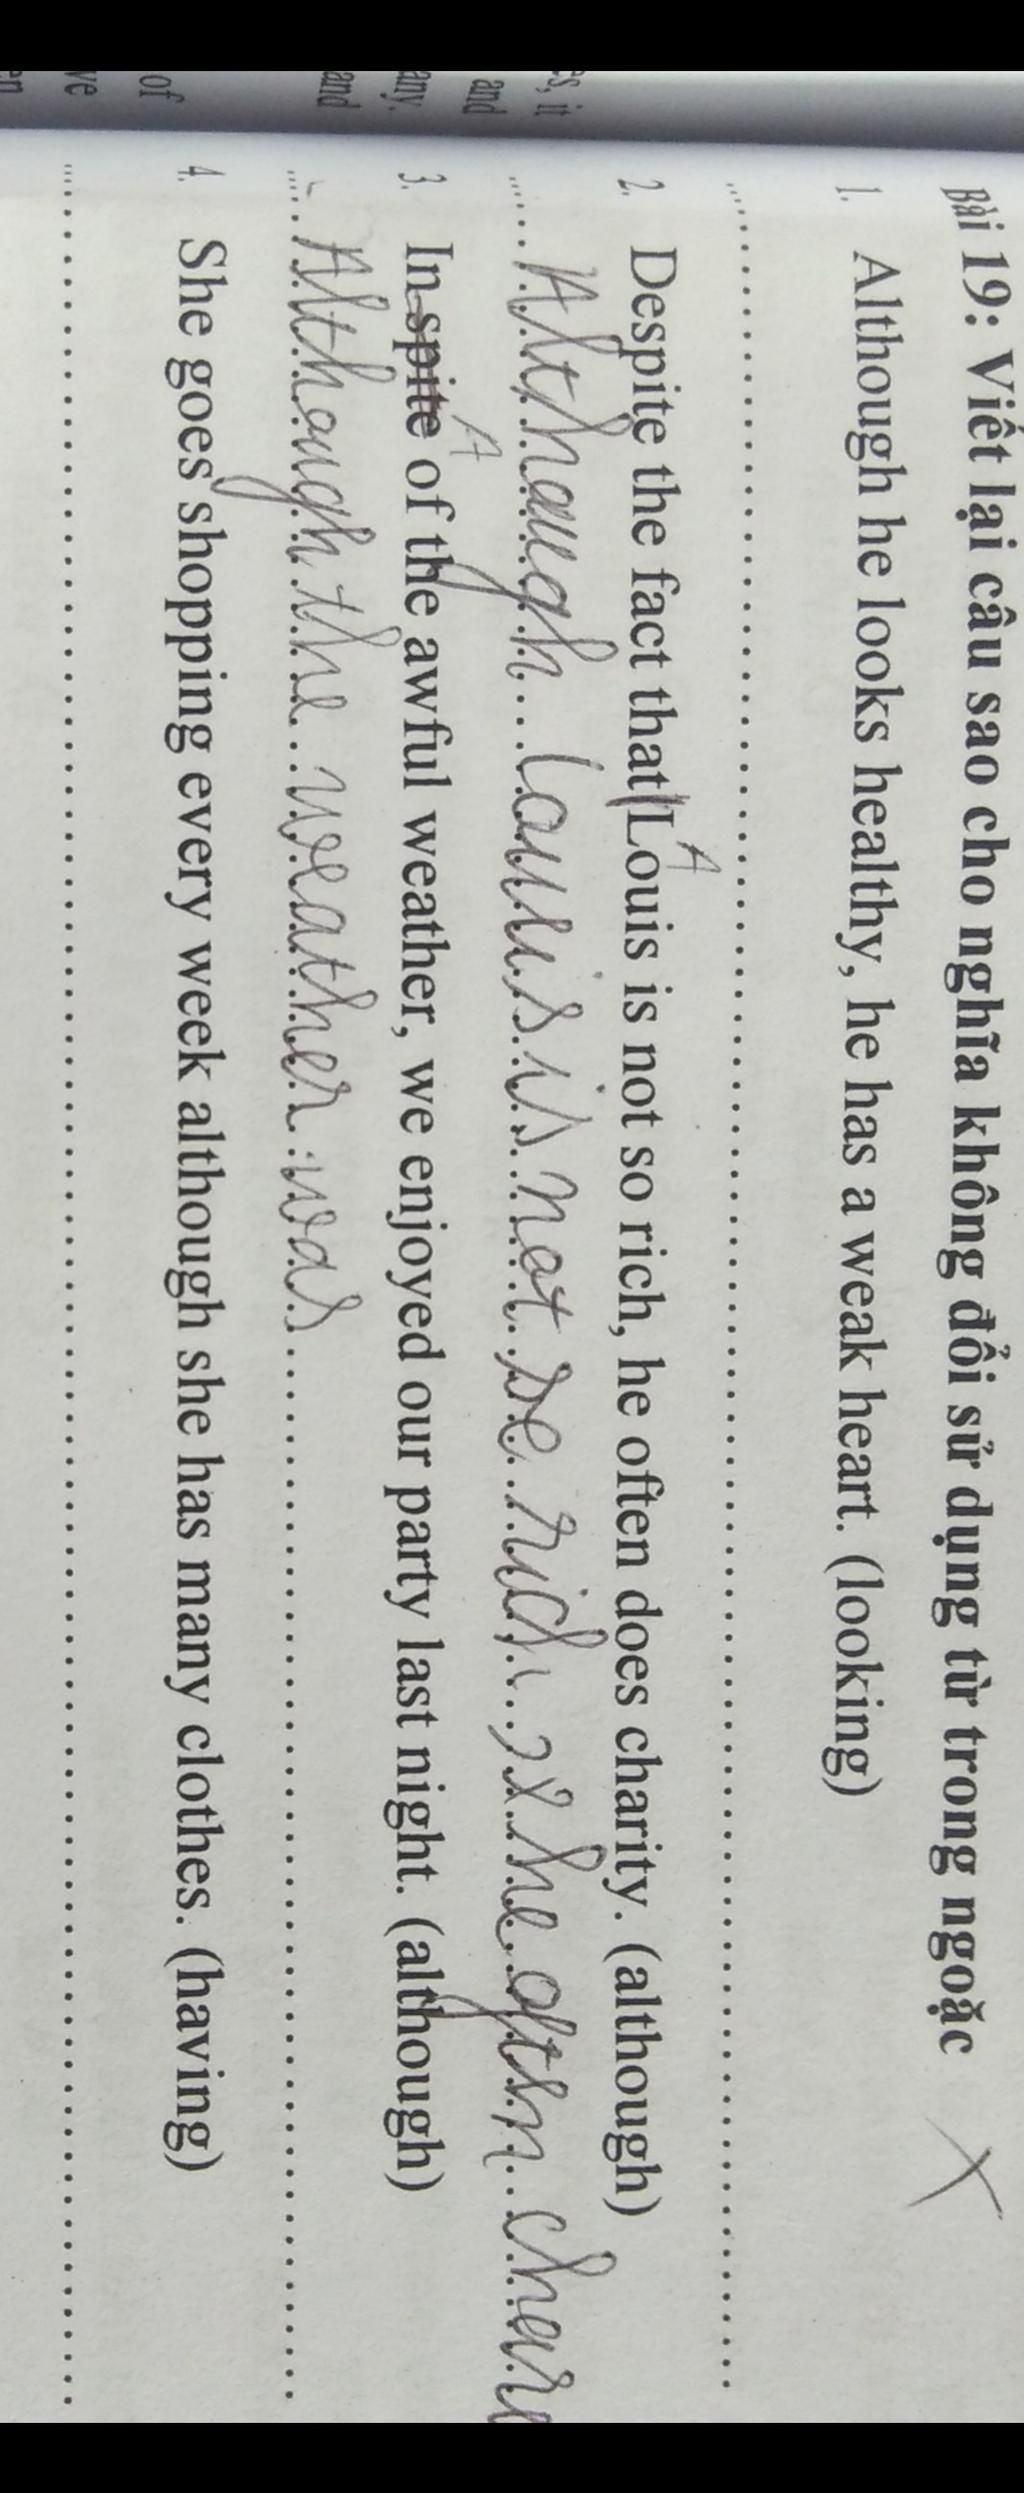 Bài 19: Viết lại câu sao cho nghĩa không đổi sử dụng từ trong ngoặc X
1. Although he looks healthy, he has a weak heart. (looking)
2. Despite the fact that Louis is not so rich, he often does charity. (although)
Although Louis is not so rich, he often
3. In spite of the awful weather, we enjoyed our party last night. (although)
Although the weather was
4. She goes shopping every week although she has many clothes. (having)
s, it
and
any.
and
of
ve
en